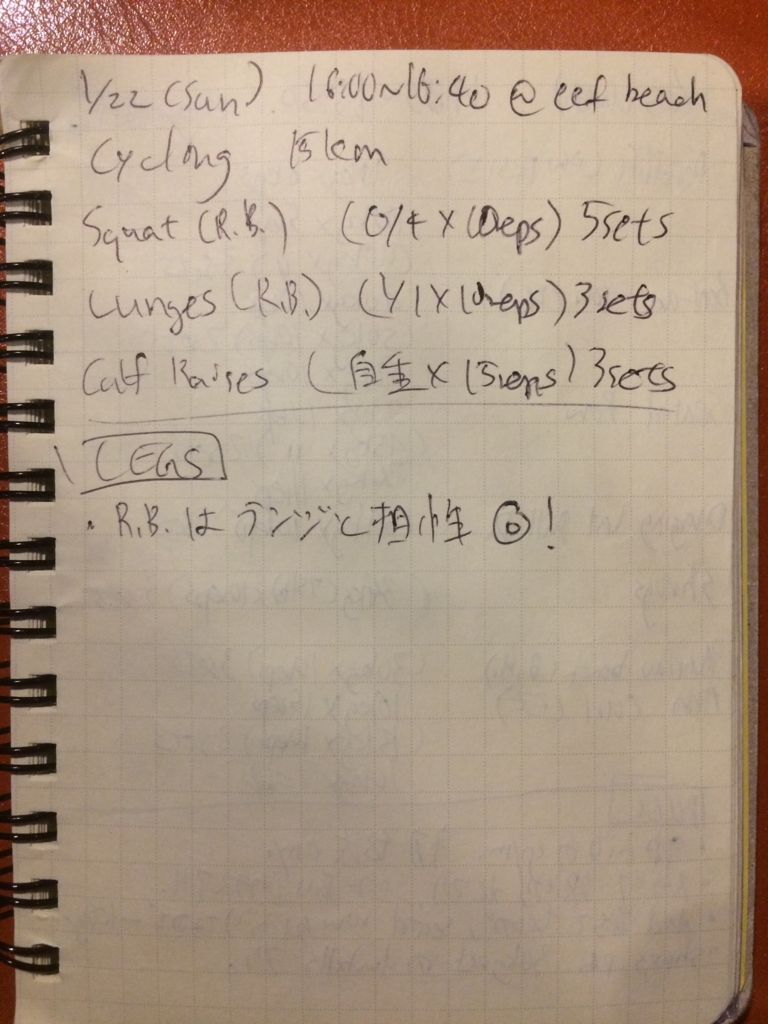 1/22 (Sun) 16:00~16:40 @ eef beach
Cycling 15km
Squat (R.B.) (O/4 × 10reps) 5sets
Lunges (R.B.) (Y1 × 10reps) 3sets
Calf Raises (自重 × 15reps) 3sets
LEGS
・R.B. はランジと相性 ◎!